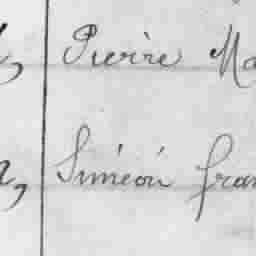 Pierre Ma
Siméon fran